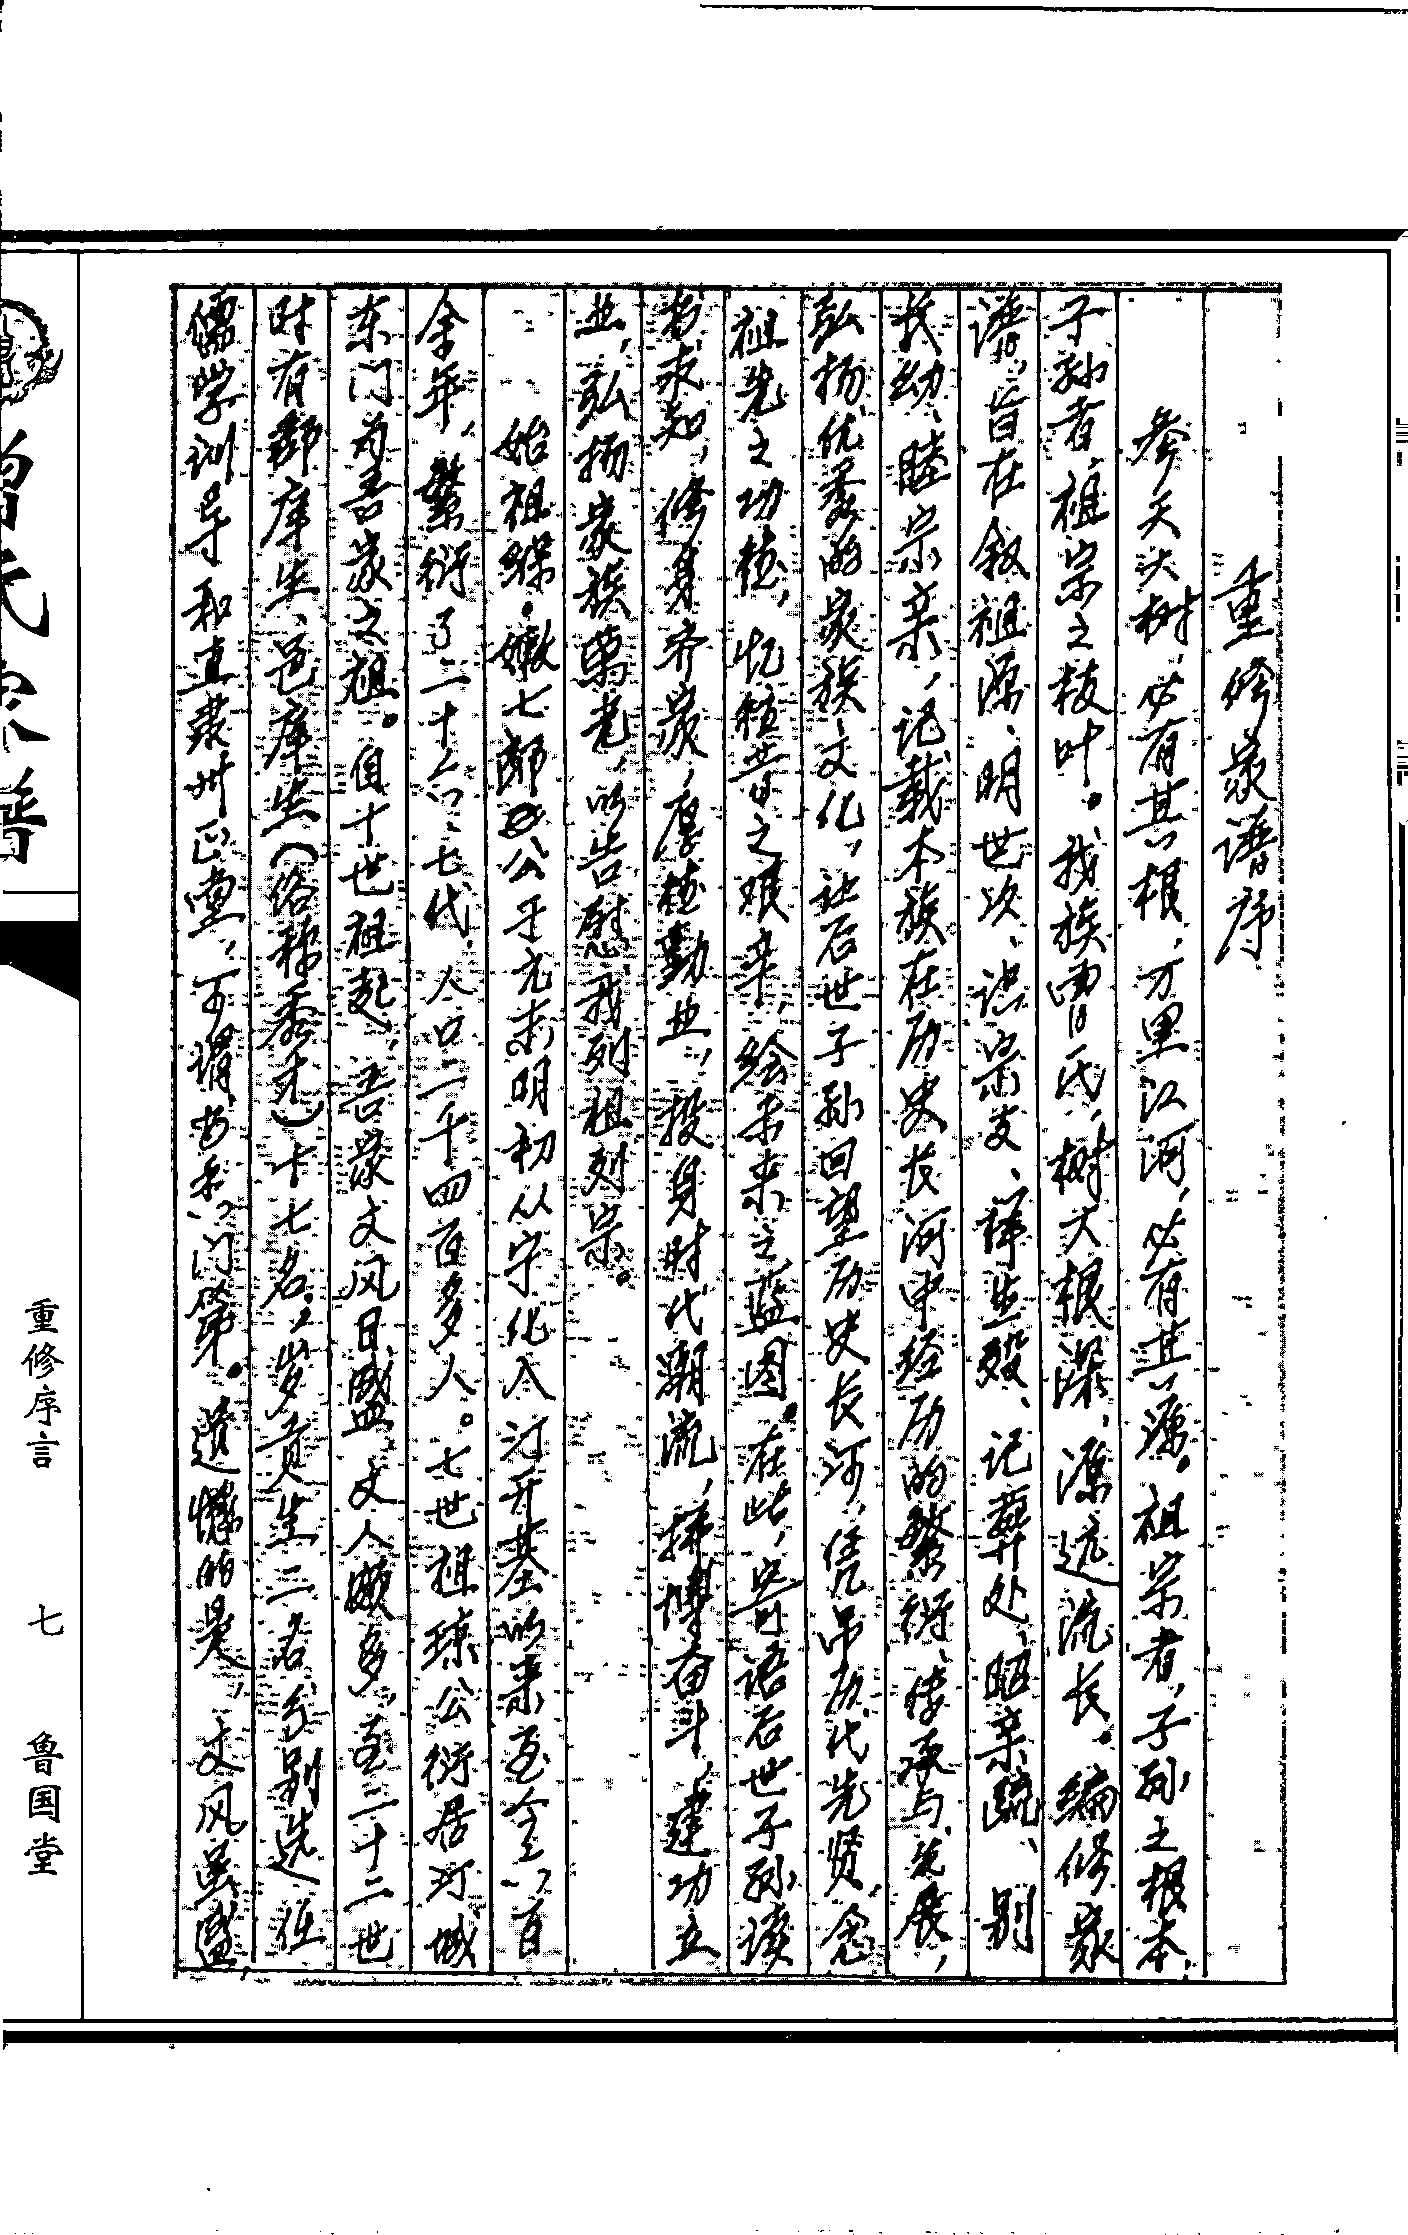 重修家谱序
参天大树，必有其根，万里江河，必有其源。祖宗者，子孙之根本，
子孙者，祖宗之枝叶。我族曾氏，树大根深，源远流长。编修家
谱，旨在叙祖源、明世次、识宗支、详生殁、记葬处、昭亲疏、别
长幼、睦宗亲，记载本族在历史长河中经历的繁衍、传承与发展，
弘扬优秀的家族文化，让后世子孙回望历史长河，凭吊历代先贤，念
祖先之功德，忆稽昔之艰辛，绘未来之蓝图。在此，寄语后世子孙读
书求知，修身齐家，厚德勤业，投身时代潮流，拼博奋斗，建功立
业，弘扬家族萬老，以告慰我列祖列宗。
始祖 七郎公于元末明初从宁化入汀开基以来至今六百
余年，繁衍了二十六、七代，人口二千四百多人。七世祖琼公衍居汀城
东门为吾家之祖。自十世祖起，吾家文风日盛，文人颇多，至二十二世
时有郡庠生、邑庠生（俗称秀才）十七名，岁贡生二名分别选任
儒学训导和直隶州正堂，可谓书香门第。遗憾的是，文风虽盛，
曾氏宗谱
重修序言
七
鲁国堂